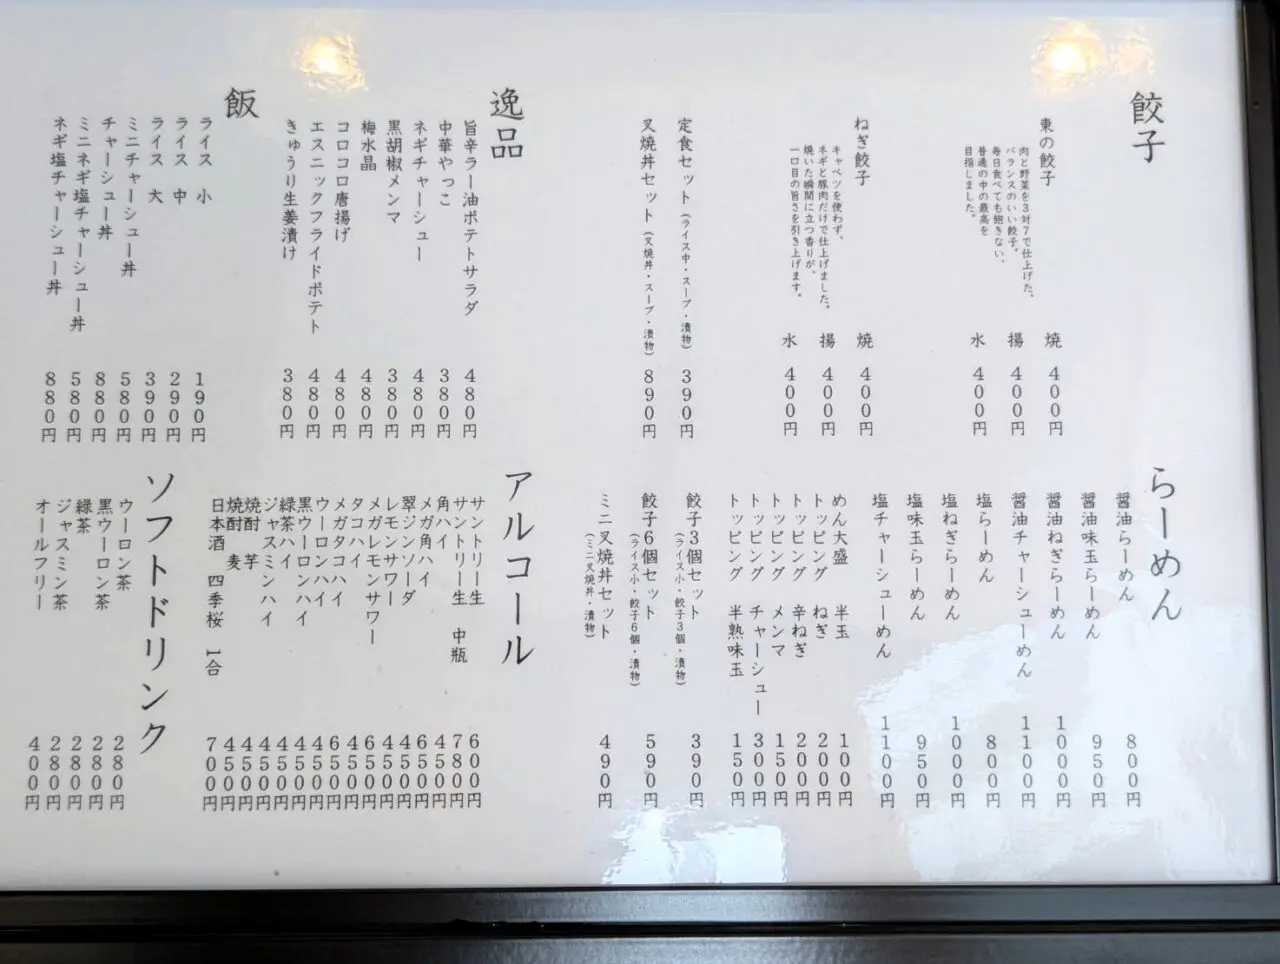 餃子
東の餃子
肉と野菜を3対7で仕上げた、
バランスのいい餃子。
毎日食べても飽きない、
普通の中の最高を
目指しました。
焼 400円
揚 400円
水 400円
ねぎ餃子
キャベツを使わず、
ネギと豚肉だけで仕上げました。
焼いた瞬間に立つ香りが、
一口目の旨さを引き上げます。
焼 400円
揚 400円
水 400円
定食セット(ライス中・スープ・漬物) 390円
叉焼丼セット(叉焼丼・スープ・漬物) 890円
逸品
旨辛ラー油ポテトサラダ 480円
中華やっこ 380円
ネギチャーシュー 480円
黒胡椒メンマ 380円
梅水晶 480円
コロコロ唐揚げ 480円
エスニックフライドポテト 480円
きゅうり生姜漬け 380円
飯
ライス 小 190円
ライス 中 290円
ライス 大 390円
ミニチャーシュー丼 580円
チャーシュー丼 880円
ミニネギ塩チャーシュー丼 580円
ネギ塩チャーシュー丼 880円
らーめん
醤油らーめん 800円
醤油味玉らーめん 950円
醤油ねぎらーめん 1000円
醤油チャーシューめん 1100円
塩らーめん 800円
塩ねぎらーめん 1000円
塩味玉らーめん 950円
塩チャーシューめん 1100円
めん大盛 半玉 100円
トッピング ねぎ 200円
トッピング 辛ねぎ 200円
トッピング メンマ 150円
トッピング チャーシュー 300円
トッピング 半熟味玉 150円
餃子3個セット 390円
(ライス小・餃子3個・漬物)
餃子6個セット 590円
(ライス小・餃子6個・漬物)
ミニ叉焼丼セット 490円
(ミニ叉焼丼・漬物)
アルコール
サントリー生 600円
サントリー生 中瓶 780円
角ハイ 450円
メガ角ハイ 650円
翠ジンソーダ 450円
レモンサワー 450円
メガレモンサワー 650円
タコハイ 450円
メガタコハイ 650円
ウーロンハイ 450円
黒ウーロンハイ 450円
緑茶ハイ 450円
ジャスミンハイ 450円
焼酎 芋 450円
焼酎 麦 450円
日本酒 四季桜 1合 700円
ソフトドリンク
ウーロン茶 280円
黒ウーロン茶 280円
緑茶 280円
ジャスミン茶 280円
オールフリー 400円